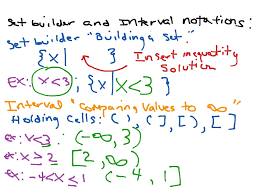 Set builder and Interval notations:
Set builder "Building a Set."
{x| }
Insert inequality
Solution
Ex: x<3 ; {x|x<3}
Interval "Comparing Values to ∞"
Holding Cells: ( ), ( ], [ ), [ ]
ex: x<3 (-∞, 3)
ex: x ≥ 2 [2, ∞)
ex: -4<x≤1 (-4, 1]